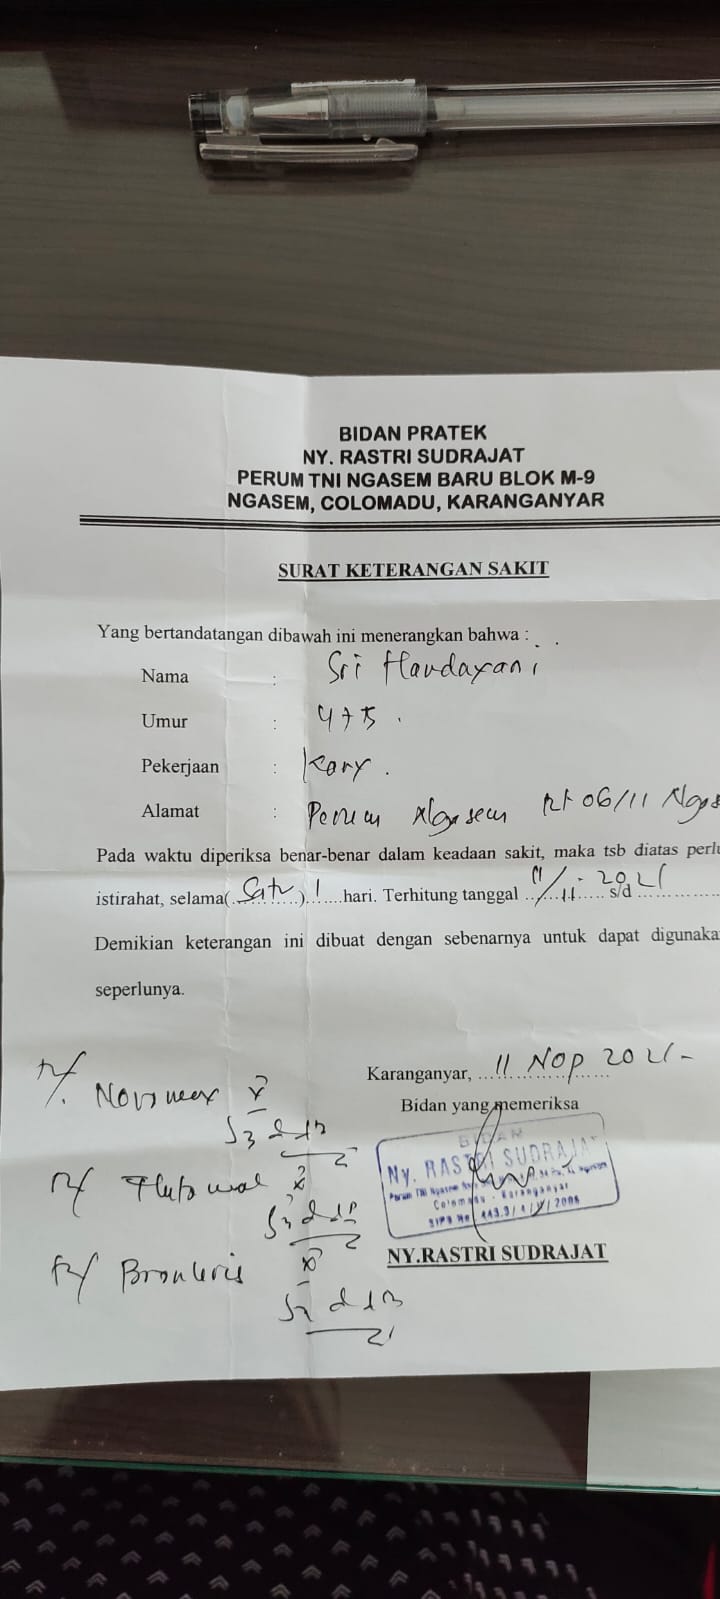 BIDAN PRATEK
NY. RASTRI SUDRAJAT
PERUM TNI NGASEM BARU BLOK M-9
NGASEM, COLOMADU, KARANGANYAR
SURAT KETERANGAN SAKIT
Yang bertandatangan dibawah ini menerangkan bahwa :
Nama : Sri Handayani
Umur : 47
Pekerjaan : Kary.
Alamat : Perum Ngasem Rt 06/11
Pada waktu diperiksa benar-benar dalam keadaan sakit, maka tsb diatas
istirahat, selama(Satu) 1 hari. Terhitung tanggal 11/11 2021 s/d
Demikian keterangan ini dibuat dengan sebenarnya untuk dapat
seperlunya.
Karanganyar, 11 Nop 2021-
Bidan yang memeriksa
BIDAN
Ny. RASTRI SUDRAJAT
Colomadu - Karanganyar
NY.RASTRI SUDRAJAT
R/
R/
R/